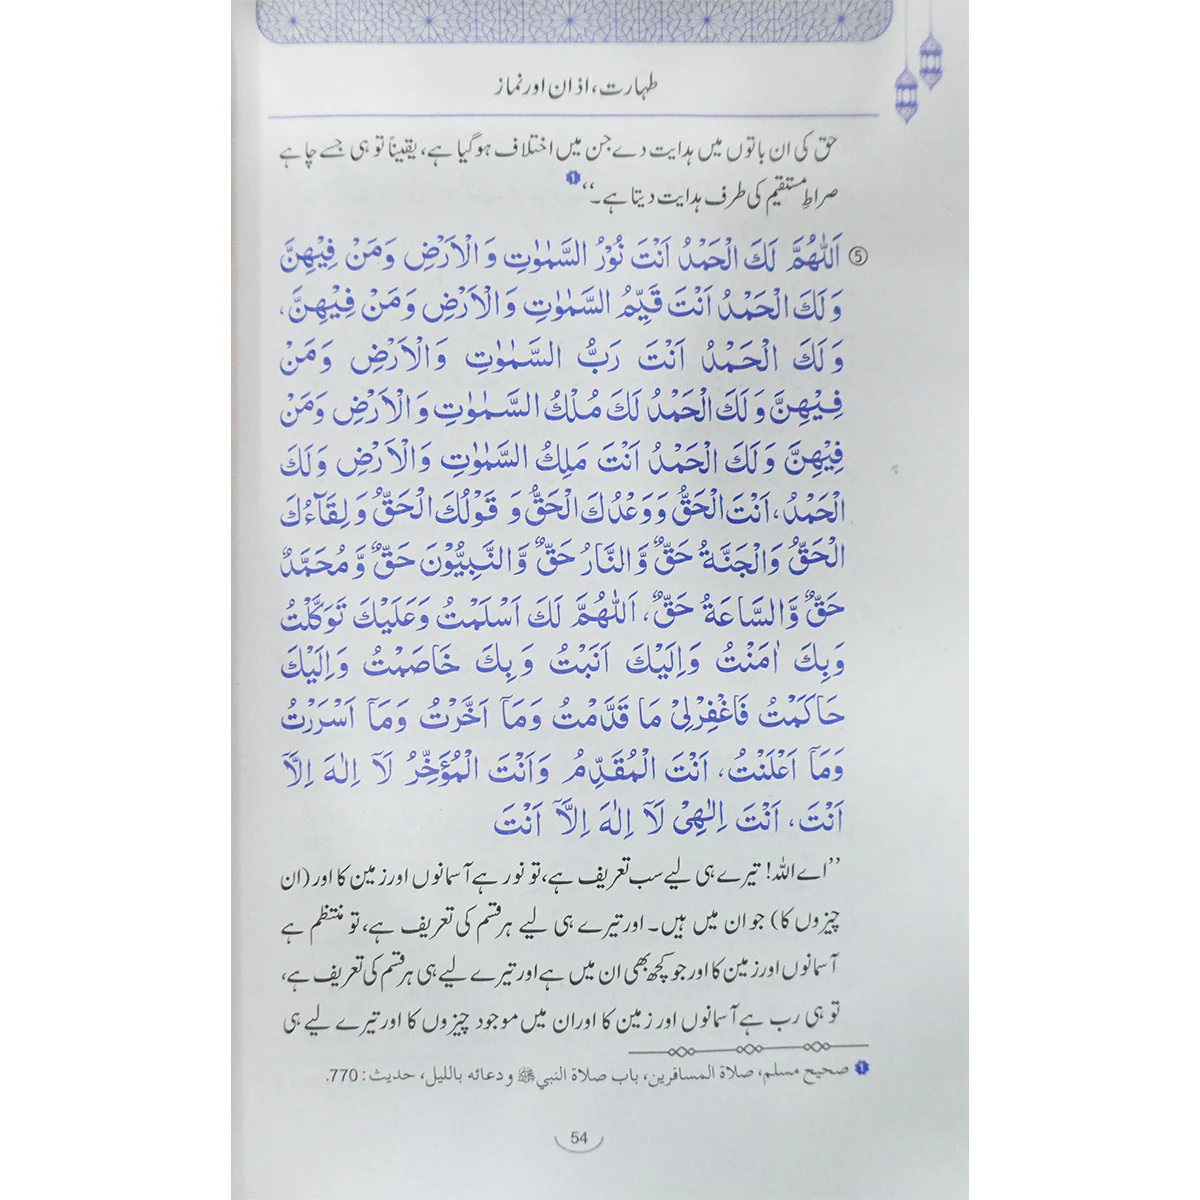 طہارت، اذان اور نماز
حق کی ان باتوں میں ہدایت دے جن میں اختلاف ہو گیا ہے، یقیناً تو ہی جسے چاہے
صراطِ مستقیم کی طرف ہدایت دیتا ہے۔‘‘ 1
⑤ اَللّٰهُمَّ لَكَ الْحَمْدُ اَنْتَ نُوْرُ السَّمٰوٰتِ وَالْاَرْضِ وَمَنْ فِيْهِنَّ
وَلَكَ الْحَمْدُ اَنْتَ قَيِّمُ السَّمٰوٰتِ وَالْاَرْضِ وَمَنْ فِيْهِنَّ،
وَلَكَ الْحَمْدُ اَنْتَ رَبُّ السَّمٰوٰتِ وَالْاَرْضِ وَمَنْ
فِيْهِنَّ وَلَكَ الْحَمْدُ لَكَ مُلْكُ السَّمٰوٰتِ وَالْاَرْضِ وَمَنْ
فِيْهِنَّ وَلَكَ الْحَمْدُ اَنْتَ مَلِكُ السَّمٰوٰتِ وَالْاَرْضِ وَلَكَ
الْحَمْدُ، اَنْتَ الْحَقُّ وَوَعْدُكَ الْحَقُّ وَ قَوْلُكَ الْحَقُّ وَلِقَآءُكَ
الْحَقُّ وَالْجَنَّةُ حَقٌّ وَّالنَّارُ حَقٌّ وَّالنَّبِيُّوْنَ حَقٌّ وَّمُحَمَّدٌ
حَقٌّ وَّالسَّاعَةُ حَقٌّ، اَللّٰهُمَّ لَكَ اَسْلَمْتُ وَعَلَيْكَ تَوَكَّلْتُ
وَبِكَ اٰمَنْتُ وَاِلَيْكَ اَنَبْتُ وَبِكَ خَاصَمْتُ وَاِلَيْكَ
حَاكَمْتُ فَاغْفِرْلِيْ مَا قَدَّمْتُ وَمَآ اَخَّرْتُ وَمَآ اَسْرَرْتُ
وَمَآ اَعْلَنْتُ، اَنْتَ الْمُقَدِّمُ وَاَنْتَ الْمُؤَخِّرُ لَآ اِلٰهَ اِلَّآ
اَنْتَ، اَنْتَ اِلٰهِيْ لَآ اِلٰهَ اِلَّآ اَنْتَ
’’اے اللہ! تیرے ہی لیے سب تعریف ہے، تو نور ہے آسمانوں اور زمین کا اور (ان
چیزوں کا) جو ان میں ہیں۔ اور تیرے ہی لیے ہر قسم کی تعریف ہے، تو منتظم ہے
آسمانوں اور زمین کا اور جو کچھ بھی ان میں ہے اور تیرے لیے ہی ہر قسم کی تعریف ہے،
تو ہی رب ہے آسمانوں اور زمین کا اور ان میں موجود چیزوں کا اور تیرے لیے ہی
1 صحيح مسلم، صلاة المسافرين، باب صلاة النبي ﷺ ودعائه بالليل، حديث: 770.
54